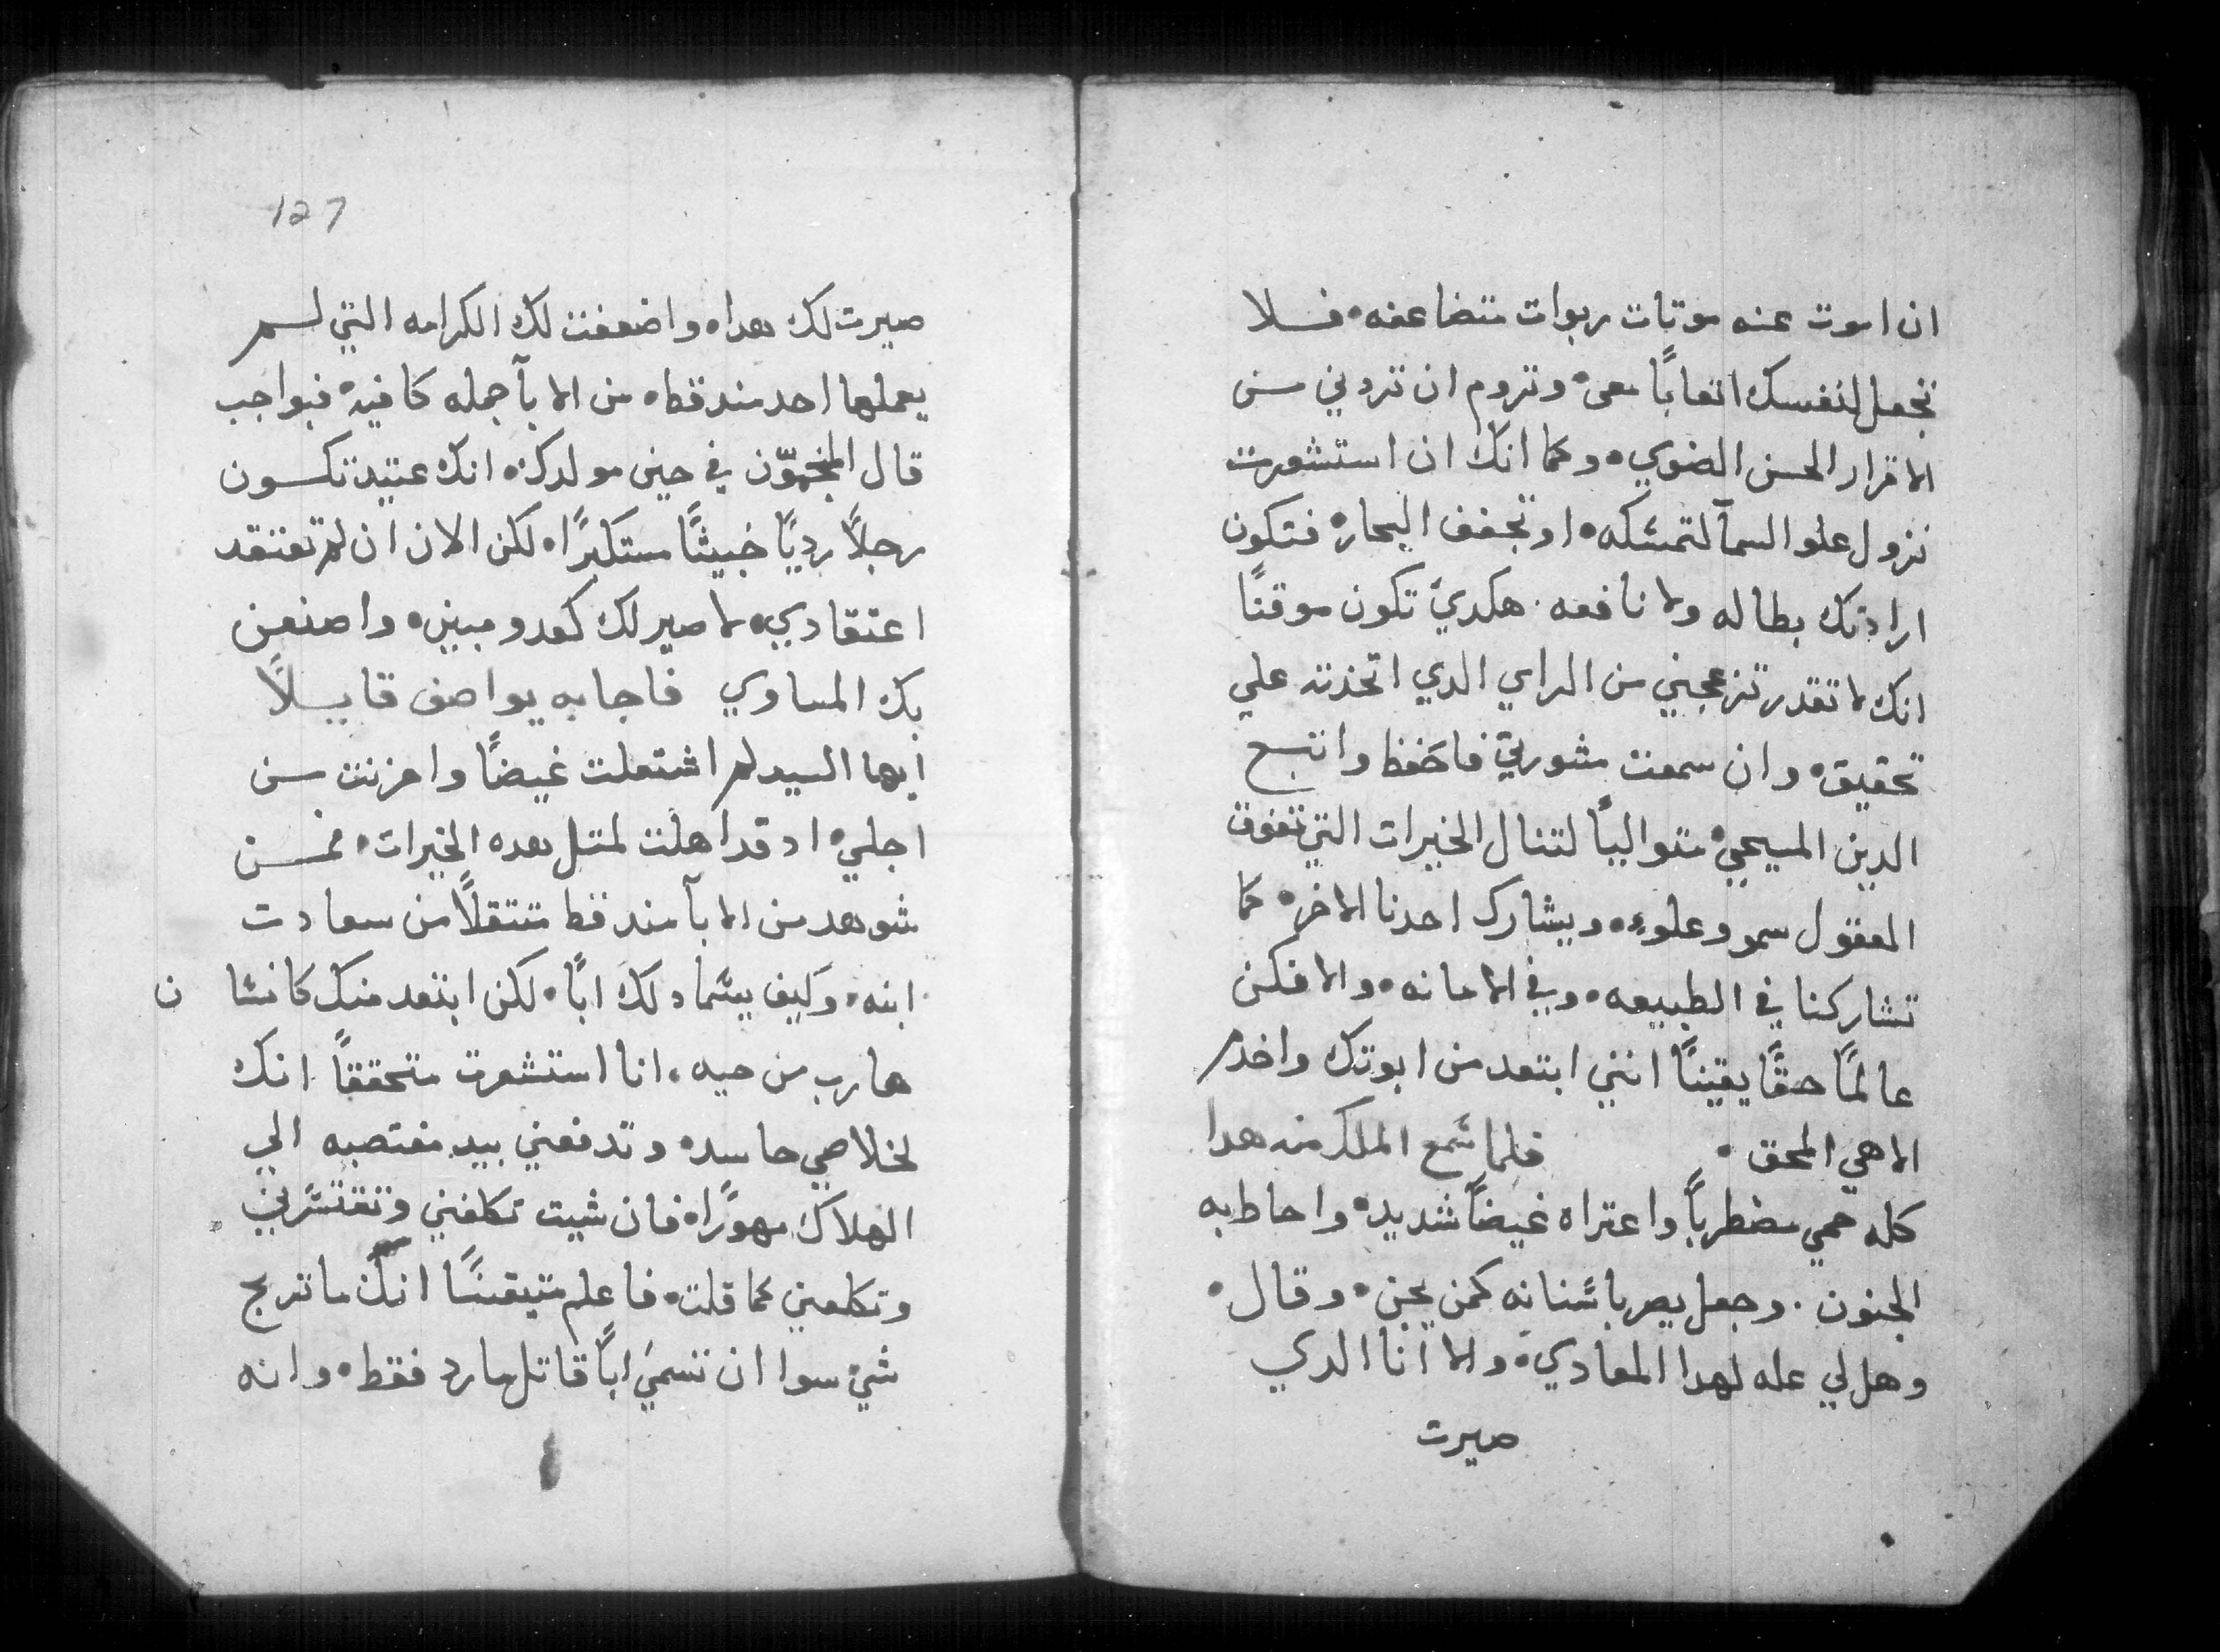 ان اموت عنه موتات ربوات متضاعفه٠ فلا
تجعل لنفسك اتعابًا معي٠ وتروم ان تردني من
الاقرار الحسن الضوي٠ وكما انك ان استشعرت
تزول علو السمآ لتمسكه٠ او تجفف البحار٠ فتكون
ارادتك بطاله ولا نافعه٠ هكدي تكون موقنًا
انك لا تقدر تزعجني من الراي الدي اتخذته علي
تحقيق٠ وان سمعت مشورتي فاحفظ واتبع
الدين المسيحي٠ متواليًا لتنال الخيرات التي تفوق
العقول سمو وعلو٠ ويشارك احدنا الاخر٠ كما
تشاركنا في الطبيعه٠ وفي الامانه٠ والا فكن
عالمًا حقًا يقينًا انني ابتعد من ابوتك واخدم
الاهي المحق٠ فلما سمع الملك منه هدا
كله حمي مضطربًا واعتراه غيضًا شديد٠ واحاط به
الجنون٠ وجعل يصر باسنانه كمن يجن٠ وقال٠
وهل لي عله لهدا المعادي٠ والا انا الدي
صيرت
127
صيرت لك هدا٠ واضعفت لك الكرامه التي لم
يعملها احد مند قط٠ من الابآ جمله كافيه٠ فبواجب
قال المنجمون في حين مولدك٠ انك عتيد تكون
رجلًا رديًا خبيثًا مستكبرًا٠ لكن الان ان لم تعتقد
اعتقادي٠ لاصير لك كعدو مبين٠ واصنعن
بك المساوي فاجابه يواصف قايلًا
ايها السيد لم اشتعلت غيضًا واحزنت من
اجلي٠ اد قد اهلت لمتل هده الخيرات٠ فمن
شوهد من الابآ مند قط متتقلًا من سعادت
ابنه٠ وكيف يسماد لك ابًا٠ لكن ابتعد منك كانسان
هارب من حيه٠ انا استشعرت متحققًا انك
لخلاصي حاسد٠ وتدفعني بيد مغتصبه الي
الهلاك مهورًا٠ فان شيت تكلفني وتقتسرني
وتكلمني كما قلت٠ فاعلم متيقنًا انك ما تربح
شي سوا ان تسمي ابًا قاتل مارد فقط٠ وانه